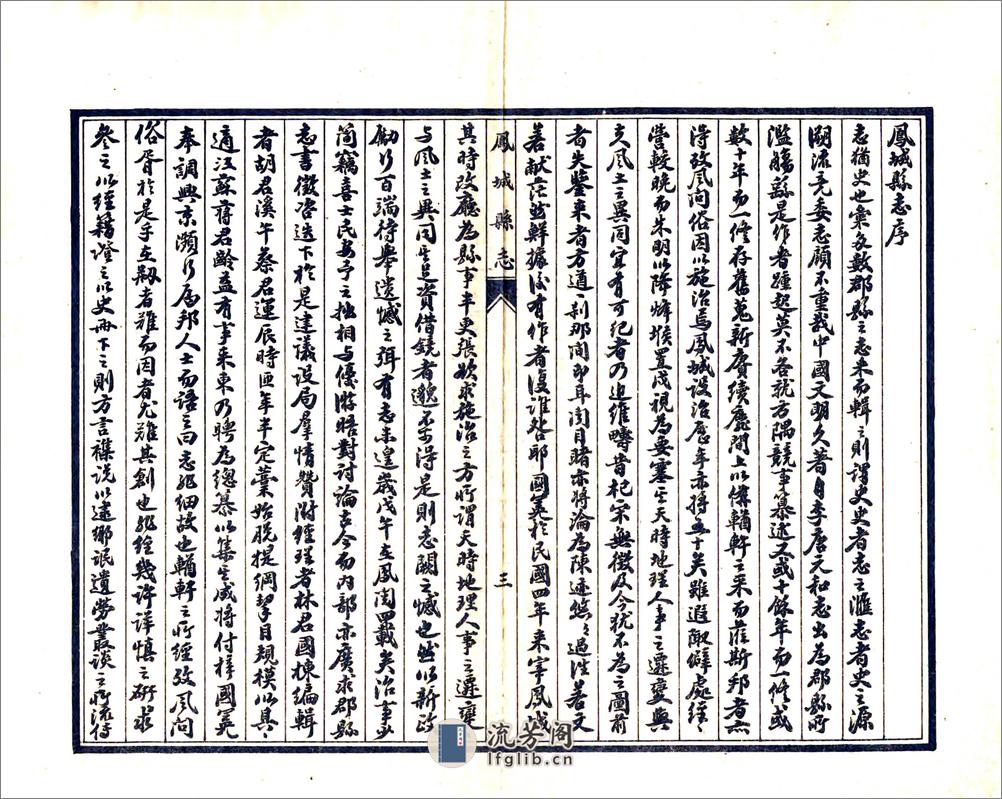 鳳城縣志序
志猶史也彙各數郡縣之志米而輯之則謂史史者志之滙志者史之源
溯流竟委志顧不重哉中國文明久著自李唐元和志出為郡縣所
濫觴繇是作者踵起莫不各就方隅競事纂述又或十餘年而一修或
數十年而一修存舊蒐新賡續麃間上以備輶軒之采而蒞斯邦者亦
得攷風問俗因以施治焉鳳城設治歷年亦將五十矣雖遐陬僻處經
營較晚而朱明以降烽堠置戍視為要塞其天時地理人事之遷變與
夫風土之異同宜有可紀者乃追維疇昔杞宋無徵及今猶不為之圖前
者失鑒來者方遒一刹那間即耳聞目睹亦將淪為陳迹悠悠過往若文
若獻茫茫鮮據後有作者復誰咎耶國寯於民國四年來宰鳳城
鳳城縣志
三
其時改廳為縣事半更張欲求施治之方所謂天時地理人事之遷變
與風土之異同其足資借鏡者邈不可得是則志闕之憾也然以新政
勵行百端待舉遺憾之弭有志未遑歲戊午在鳳閱四載矣治事少
簡竊喜士民安予之拙相與優游晤對討論古今而內部亦廣求郡縣
志書徵咨迭下於是建議設局羣情贊附經理者林君國棟編輯
者胡君溪午蔡君運辰時匝年半定藁始脫提綱挈目規模以具
適江蘇蔣君齡益有事來東乃聘為總纂以集其成將付梓國寯
奉調興京瀕行屬邦人士而語之曰志非細故也輶軒之所經攷風問
俗胥於是乎在剏者難而因者尤難其創也非經幾許詳慎之研求
參之以經籍證之以史冊下之則方言襍說以逮鄉氓遺勞叢談之所流傳
流芳阁
lfglib.cn